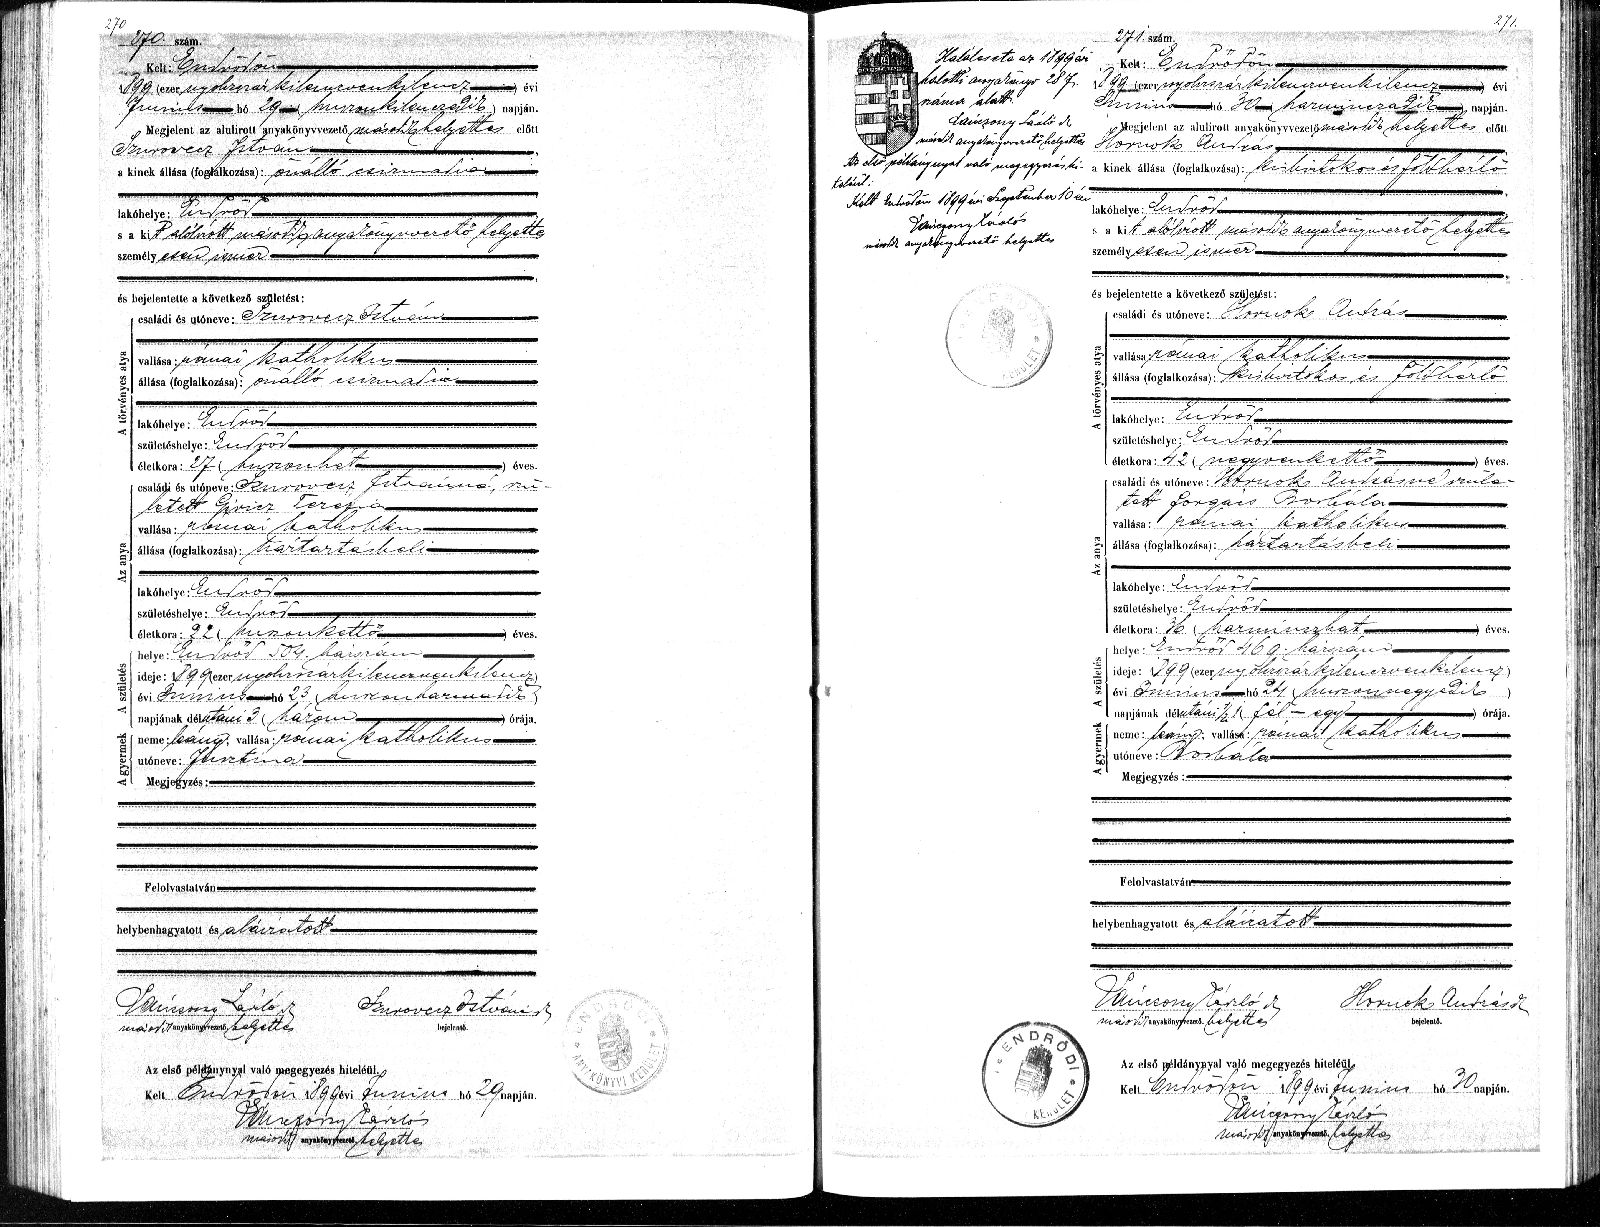 270
270. szám.
Kelt: Endrődön
1899 (ezer nyolczszázkilenczvenkilencz) évi
Junius hó 29 (huszonkilenczedik) napján.
Megjelent az alulirott anyakönyvvezető másodikhelyettes előtt
Szurovecz István
a kinek állása (foglalkozása): önálló csizmadia
lakóhelye: Endrőd
s a kit alólirott második anyakönyvvezető helyettes
személyesen ismer
és bejelentette a következő születést:
A törvényes atya
családi és utóneve: Szurovecz István
vallása: római katholikus
állása (foglalkozása): önálló csizmadia
lakóhelye: Endrőd
születéshelye: Endrőd
életkora: 27 (huszonhét) éves.
Az anya
családi és utóneve: Szurovecz Istvánné, szü-
letett Gőricz Terézia
vallása: római katholikus
állása (foglalkozása): háztartásbeli
lakóhelye: Endrőd
születéshelye: Endrőd
életkora: 22 (huszonkettő) éves.
A születés
helye: Endrőd 504. házszám
ideje: 1899 (ezer nyolczszázkilenczvenkilencz)
évi Junius hó 23. (huszonharmadik)
napjának délutáni 3 (három) órája.
A gyermek
neme: leány, vallása: római katholikus
utóneve: Jusztina
Megjegyzés:
Felolvastatván
helybenhagyatott és aláiratott
Vaniczony László
második anyakönyvvezető helyettes
Szurovecz István
bejelentő.
Az első példánynyal való megegyezés hiteléül,
Kelt Endrődön 1899 évi Junius hó 29 napján.
László
második anyakönyvvezető helyettes
ENDRŐDI ANYAKÖNYVI KERÜLET
271.
Haláleseta az 1899 évi
halotti anyakönyv 287
száma alatt
László
másodk anyakönyvvezető helyettes
Az első példánynyal való megegyezés hi-
teléül:
Kelt Endrődön 1899 évi Szeptember 10 én
László
másodk anyakönyvvezető helyettes
KERÜLET
271. szám.
Kelt: Endrődön
1899 (ezer nyolczszázkilenczvenkilencz) évi
Junius hó 30 (harminczadik) napján.
Megjelent az alulirott anyakönyvvezető második helyettes előtt
Hornok András
a kinek állása (foglalkozása): kisbirtokos és földbérlő
lakóhelye: Endrőd
s a kit alólirott második anyakönyvvezető helyettes
személyesen ismer
és bejelentette a következő születést:
A törvényes atya
családi és utóneve: Hornok András
vallása: római katholikus
állása (foglalkozása): kisbirtokos és földbérlő
lakóhelye: Endrőd
születéshelye: Endrőd
életkora: 42 (negyvenkettő) éves.
Az anya
családi és utóneve: Hornok Andrásné szüle-
tett Forgács Borbála
vallása: római katholikus
állása (foglalkozása): háztartásbeli
lakóhelye: Endrőd
születéshelye: Endrőd
életkora: 36 (harminczhat) éves.
A születés
helye: Endrőd 469. házszám
ideje: 1899 (ezer nyolczszázkilenczvenkilencz)
évi Junius hó 24 (huszonnegyedik)
napjának délutáni ½1 (fél - egy) órája.
A gyermek
neme: leány, vallása: római katholikus
utóneve: Borbála
Megjegyzés:
Felolvastatván
helybenhagyatott és aláiratott
László
második anyakönyvvezető helyettes
Hornok András
bejelentő.
Az első példánynyal való megegyezés hiteléül,
Kelt Endrődön 1899 évi Junius hó 30 napján.
László
második anyakönyvvezető helyettes
ENDRŐDI KERÜLET